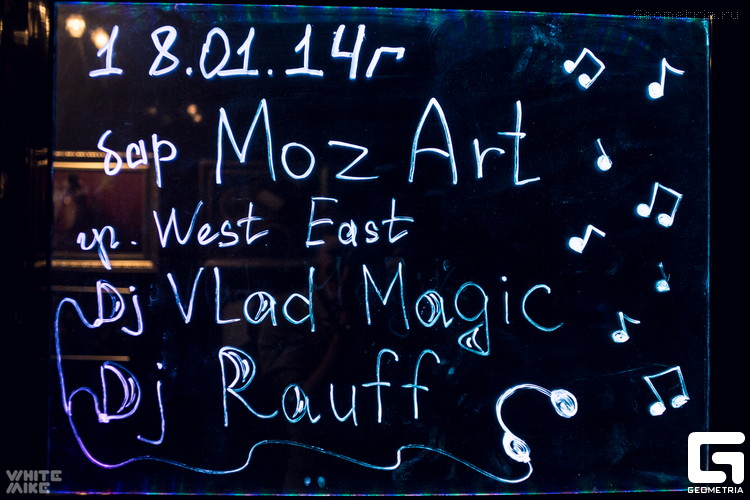 Geometria.ru
18.01.14г
бар MozArt
гр. West East
Dj VLad Magic
Dj Rauff
WHITE
MIKE
GEOMETRIA